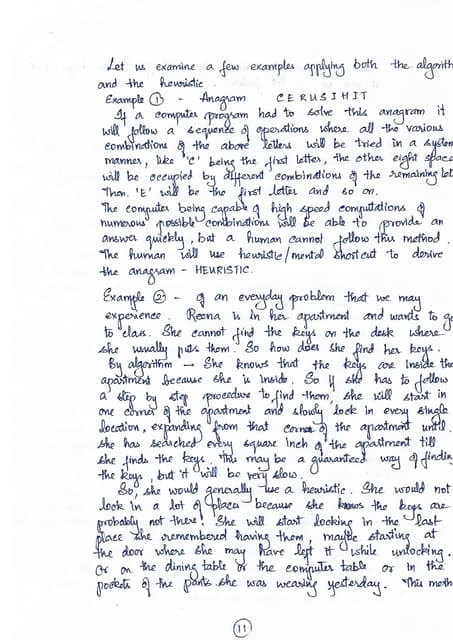 Let us examine a few examples applying both the algorith
and the heuristic.
Example ① - Anagram CERUSIHIT
If a computer program had to solve this anagram it
will follow a sequence of operations where all the various
combinations of the above letters will be tried in a system
manner, like 'C' being the first letter, the other eight space
will be occupied by different combinations of the remaining let
Then 'E' will be the first letter and so on.
The computer being capable of high speed computations of
numerous possible combinations will be able to provide an
answer quickly, but a human cannot follow this method.
The human will use heuristic/mental shortcut to derive
the anagram - HEURISTIC.
Example ② - of an everyday problem that we may
experience. Reena is in her apartment and wants to go
to class. She cannot find the keys on the desk where
she usually puts them. So how does she find her keys.
By algorithm - She knows that the keys are inside the
apartment because she is inside. So if she has to follow
a step by step procedure to find them, she will start in
one corner of the apartment and slowly look in every single
location, expanding from that corner of the apartment until
she has searched every square inch of the apartment till
she finds the keys. This may be a guaranteed way of findin
the keys, but it will be very slow.
So, she would generally use a heuristic. She would not
look in a lot of place because she knows the keys are
probably not there! She will start looking in the last
place she remembered having them, maybe starting at
the door where she may have left it while unlocking.
Or on the dining table or the computer table or in the
pockets of the pants she was wearing yesterday. This meth
11